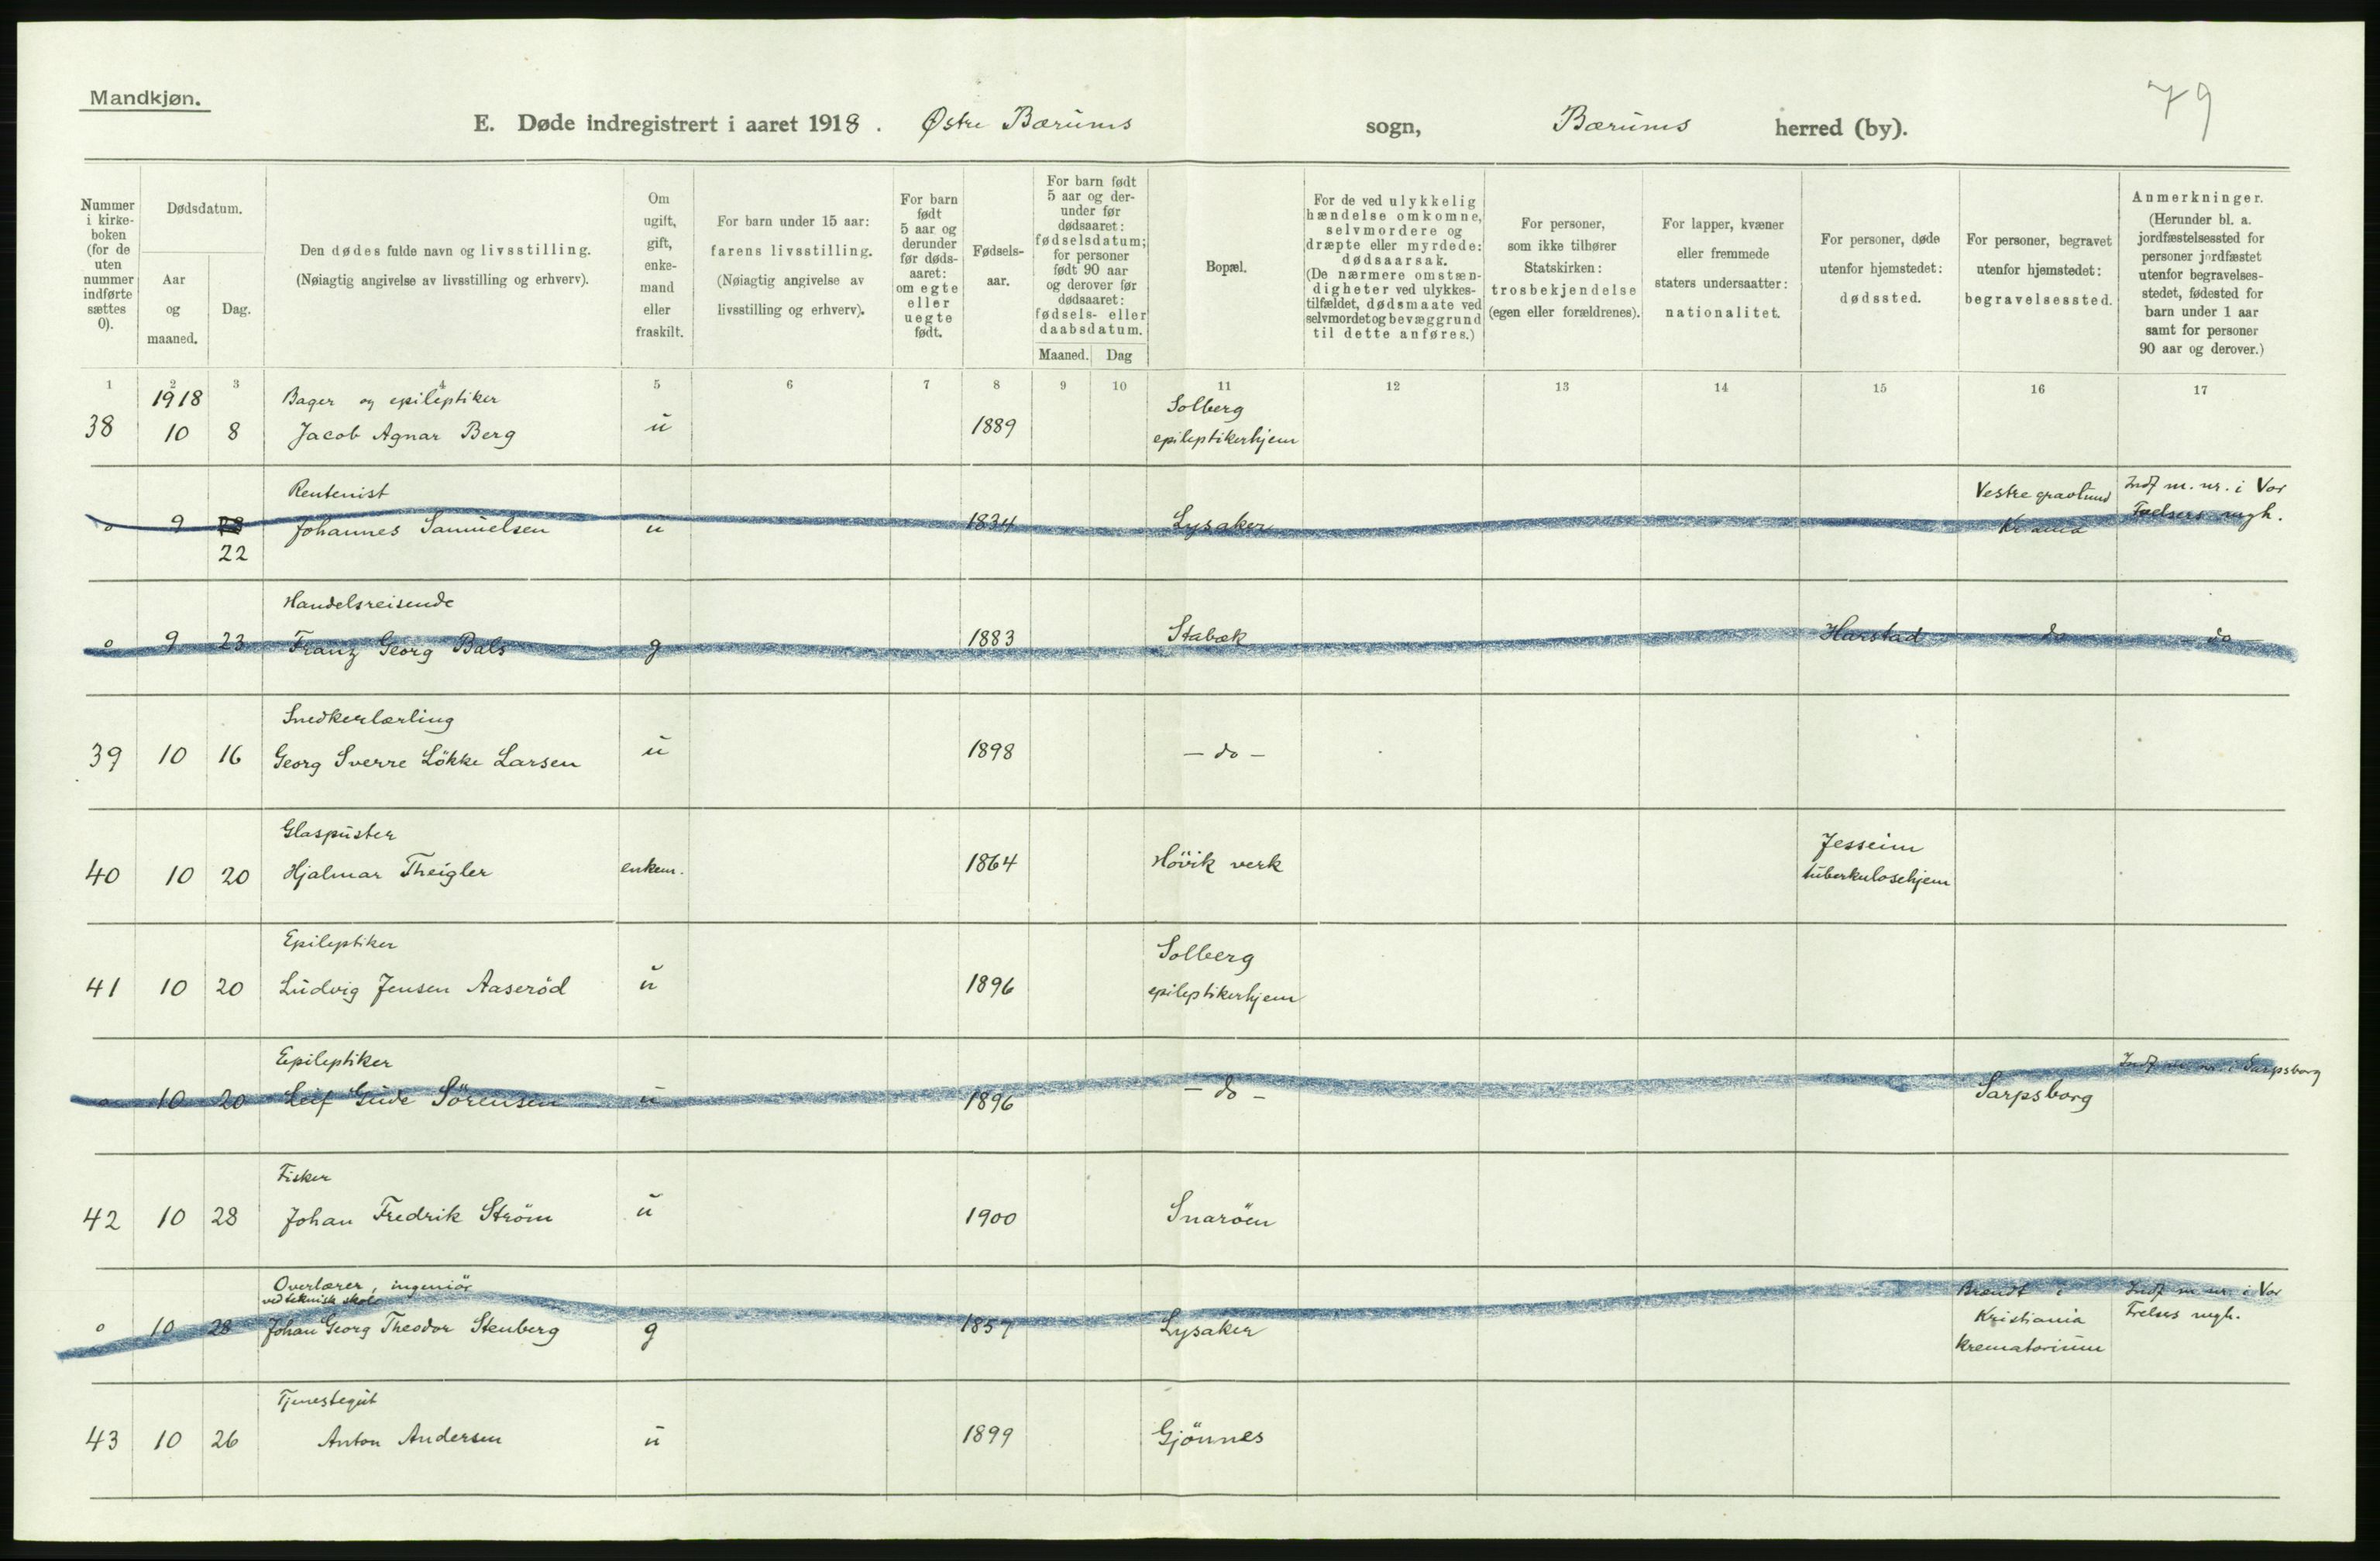 Mandkjøn.
79
E. Døde indregistrert i aaret 1918. Østre Bærums sogn, Bærums herred (by).
Nummer i kirke-boken (for de uten nummer indførte sættes 0).
Dødsdatum.
Aar og maaned.
Dag.
Den dødes fulde navn og livsstilling.
(Nøiagtig angivelse av livsstilling og erhverv).
Om ugift, gift, enke-mand eller fraskilt.
For barn under 15 aar: farens livsstilling.
(Nøiagtig angivelse av livsstilling og erhverv).
For barn født 5 aar og derunder før døds-aaret: om egte eller uegte født.
Fødsels-aar.
For barn født 5 aar og der-under før dødsaaret: fødselsdatum; for personer født 90 aar og derover før dødsaaret: fødsels- eller daabsdatum.
Maaned. Dag
Bopæl.
For de ved ulykkelig hændelse omkomne, selvmordere og dræpte eller myrdede: dødsaarsak.
(De nærmere omstæn-digheter ved ulykkes-tilfældet, dødsmaate ved selvmordet og bevæggrund til dette anføres.)
For personer, som ikke tilhører Statskirken: trosbekjendelse (egen eller forældrenes).
For lapper, kvæner eller fremmede staters undersaatter: nationalitet.
For personer, døde utenfor hjemstedet: dødssted.
For personer, begravet utenfor hjemstedet: begravelsessted.
Anmerkninger.
(Herunder bl. a. jordfæstelsessted for personer jordfæstet utenfor begravelses-stedet, fødested for barn under 1 aar samt for personer 90 aar og derover.)
1 2 3 4 5 6 7 8 9 10 11 12 13 14 15 16 17
1918 Bager og epileptiker Solberg
38 10 8 Jacob Agnar Berg u 1889 epileptikerhjem
Rentenist Vestre gravlund Indf m. nr. i Vor
0 9 Johannes Samuelsen u 1834 Lysaker Kr.ania Frelsers mgh.
22
Handelsreisende
0 9 23 Franz Georg Bals g 1883 Stabæk Harstad do do
Snedkerlærling
39 10 16 Georg Sverre Lökke Larsen u 1898 — do —
Glaspuster Jesseim
40 10 20 Hjalmar Theigler enkem. 1864 Hövik verk tuberkulosehjem
Epileptiker Solberg
41 10 20 Ludvig Jensen Aaseröd u 1896 epileptikerhjem
Epileptiker Indf m. nr. i Sarpsborg
0 10 20 Leif Gude Sörensen u 1896 — do — Sarpsborg
Fisker
42 10 28 Johan Fredrik Ström u 1900 Snaröen
Overlærer, ingeniör Brændt i Indf m nr. i Vor
ved teknisk skole
0 10 28 Johan Georg Theodor Stenberg g 1857 Lysaker Kristiania Frelsers mgh.
krematorium
Tjenestegut
43 10 26 Anton Andersen u 1899 Gjönnes